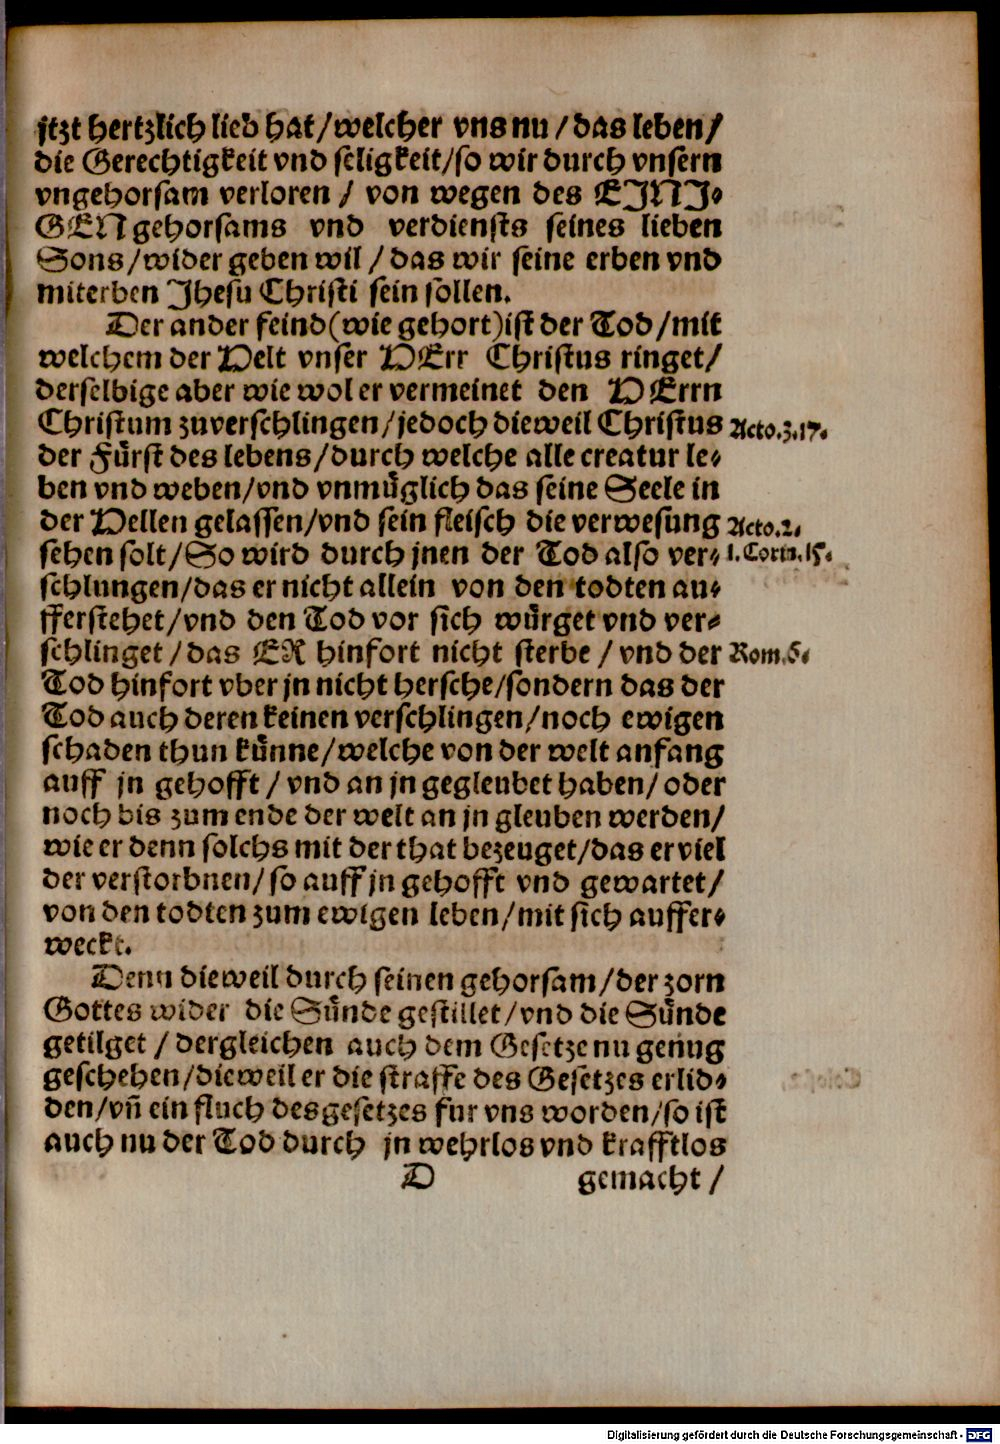 jtzt hertzlich lieb hat/welcher vns nu/das leben/
die Gerechtigkeit vnd seligkeit/so wir durch vnsern
vngehorsam verloren / von wegen des EINI-
GEN gehorsams vnd verdiensts seines lieben
Sons/wider geben wil / das wir seine erben vnd
miterben Jhesu Christi sein sollen.
Der ander feind(wie gehort)ist der Tod/mit
welchem der Helt vnser HErr Christus ringet/
derselbige aber wie wol er vermeinet den HErrn
Christum zuverschlingen/jedoch dieweil Christus
Acto.3.17.
der Fürst des lebens/durch welche alle creatur le-
ben vnd weben/vnd vnmüglich das seine Seele in
der Hellen gelassen/vnd sein fleisch die verwesung
Acto.2.
sehen solt/So wird durch jnen der Tod also ver-
1.Corin.15.
schlungen/das er nicht allein von den todten au-
fferstehet/vnd den Tod vor sich würget vnd ver-
schlinget/das ER hinfort nicht sterbe / vnd der
Rom.6.
Tod hinfort vber jn nicht hersche/sondern das der
Tod auch deren keinen verschlingen/noch ewigen
schaden thun künne/welche von der welt anfang
auff jn gehofft / vnd an jn gegleubet haben/ oder
noch bis zum ende der welt an jn gleuben werden/
wie er denn solchs mit der that bezeuget/das er viel
der verstorbnen/so auff jn gehofft vnd gewartet/
von den todten zum ewigen leben/mit sich auffer-
weckt.
Denn dieweil durch seinen gehorsam/der zorn
Gottes wider die Sünde gestillet/vnd die Sünde
getilget / dergleichen auch dem Gesetze nu genug
geschehen/dieweil er die straffe des Gesetzes erlid-
den/vñ ein fluch des gesetzes fur vns worden/so ist
auch nu der Tod durch jn wehrlos vnd krafftlos
D gemacht /
Digitalisierung gefördert durch die Deutsche Forschungsgemeinschaft - DFG